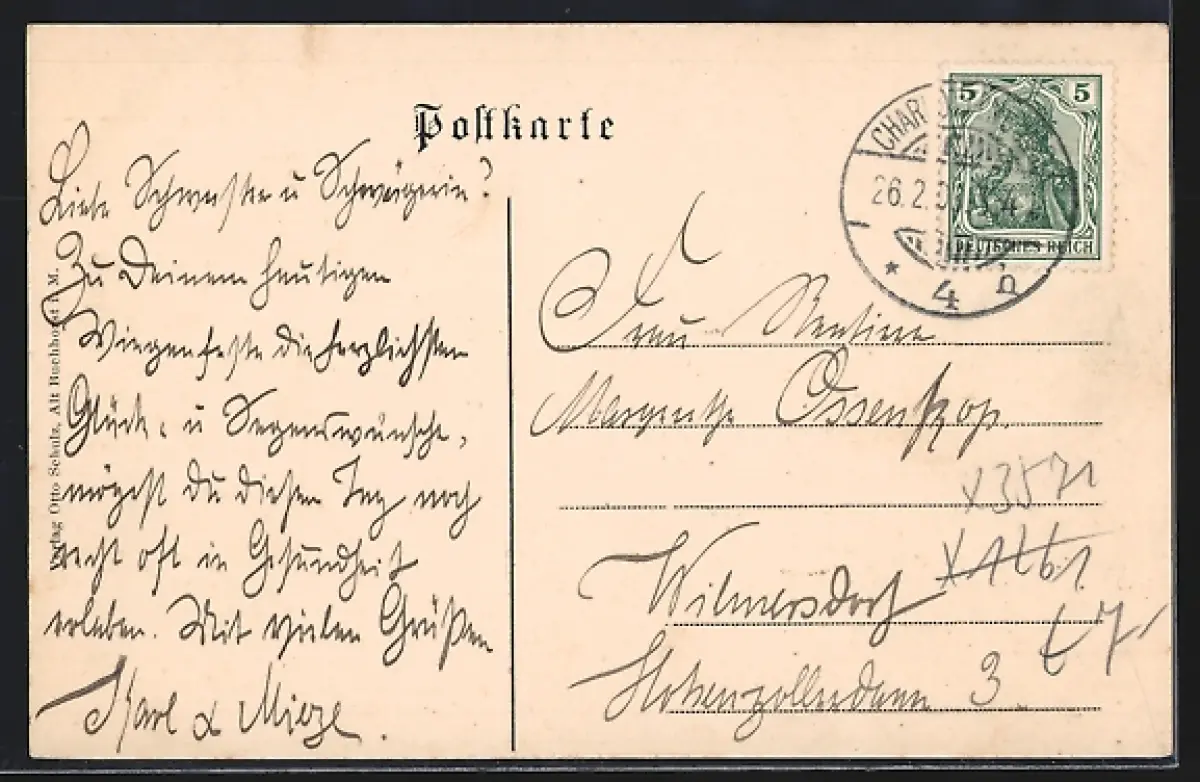 Postkarte
Liebe Schwester u Schwägerin!
Zu Deinem heutigen
Wiegenfeste die herzlichsten
Glück- u Segenswünsche,
mögest Du diesen Tag noch
recht oft in Gesundheit
erleben. Mit vielen Grüßen
Karl & Mieze.
Verlag Otto Schulz, Alt Buchhorst i. M.
5 5
DEUTSCHES REICH
26.2.
* 4 n
Frau Rentiere
Margarethe Ossenkop.
Wilmersdorf
Hohenzollerdamm 3.
x3571